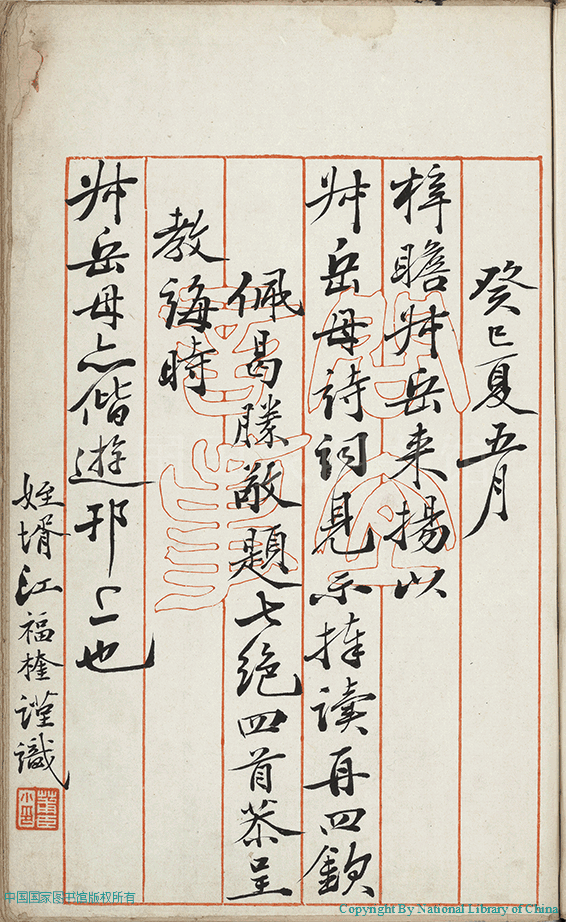 癸巳夏五月
梓瞻叔岳来揚以
叔岳母詩詞見示捧讀再四欽
佩曷勝敬題七絶四首恭呈
教誨時
叔岳母亦偕遊邗上也
姪壻江福楏謹識
中国国家图书馆版权所有
Copyright By National Library of China